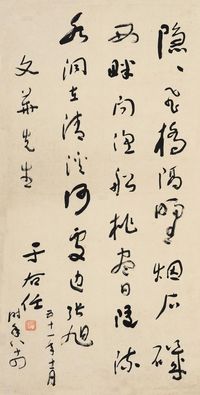 隱〻飛橋隔野烟石磯
西畔问渔船桃盡日随流
水洞在清溪何處邊張旭
文華先生
于右任
五十一年
時年八十四